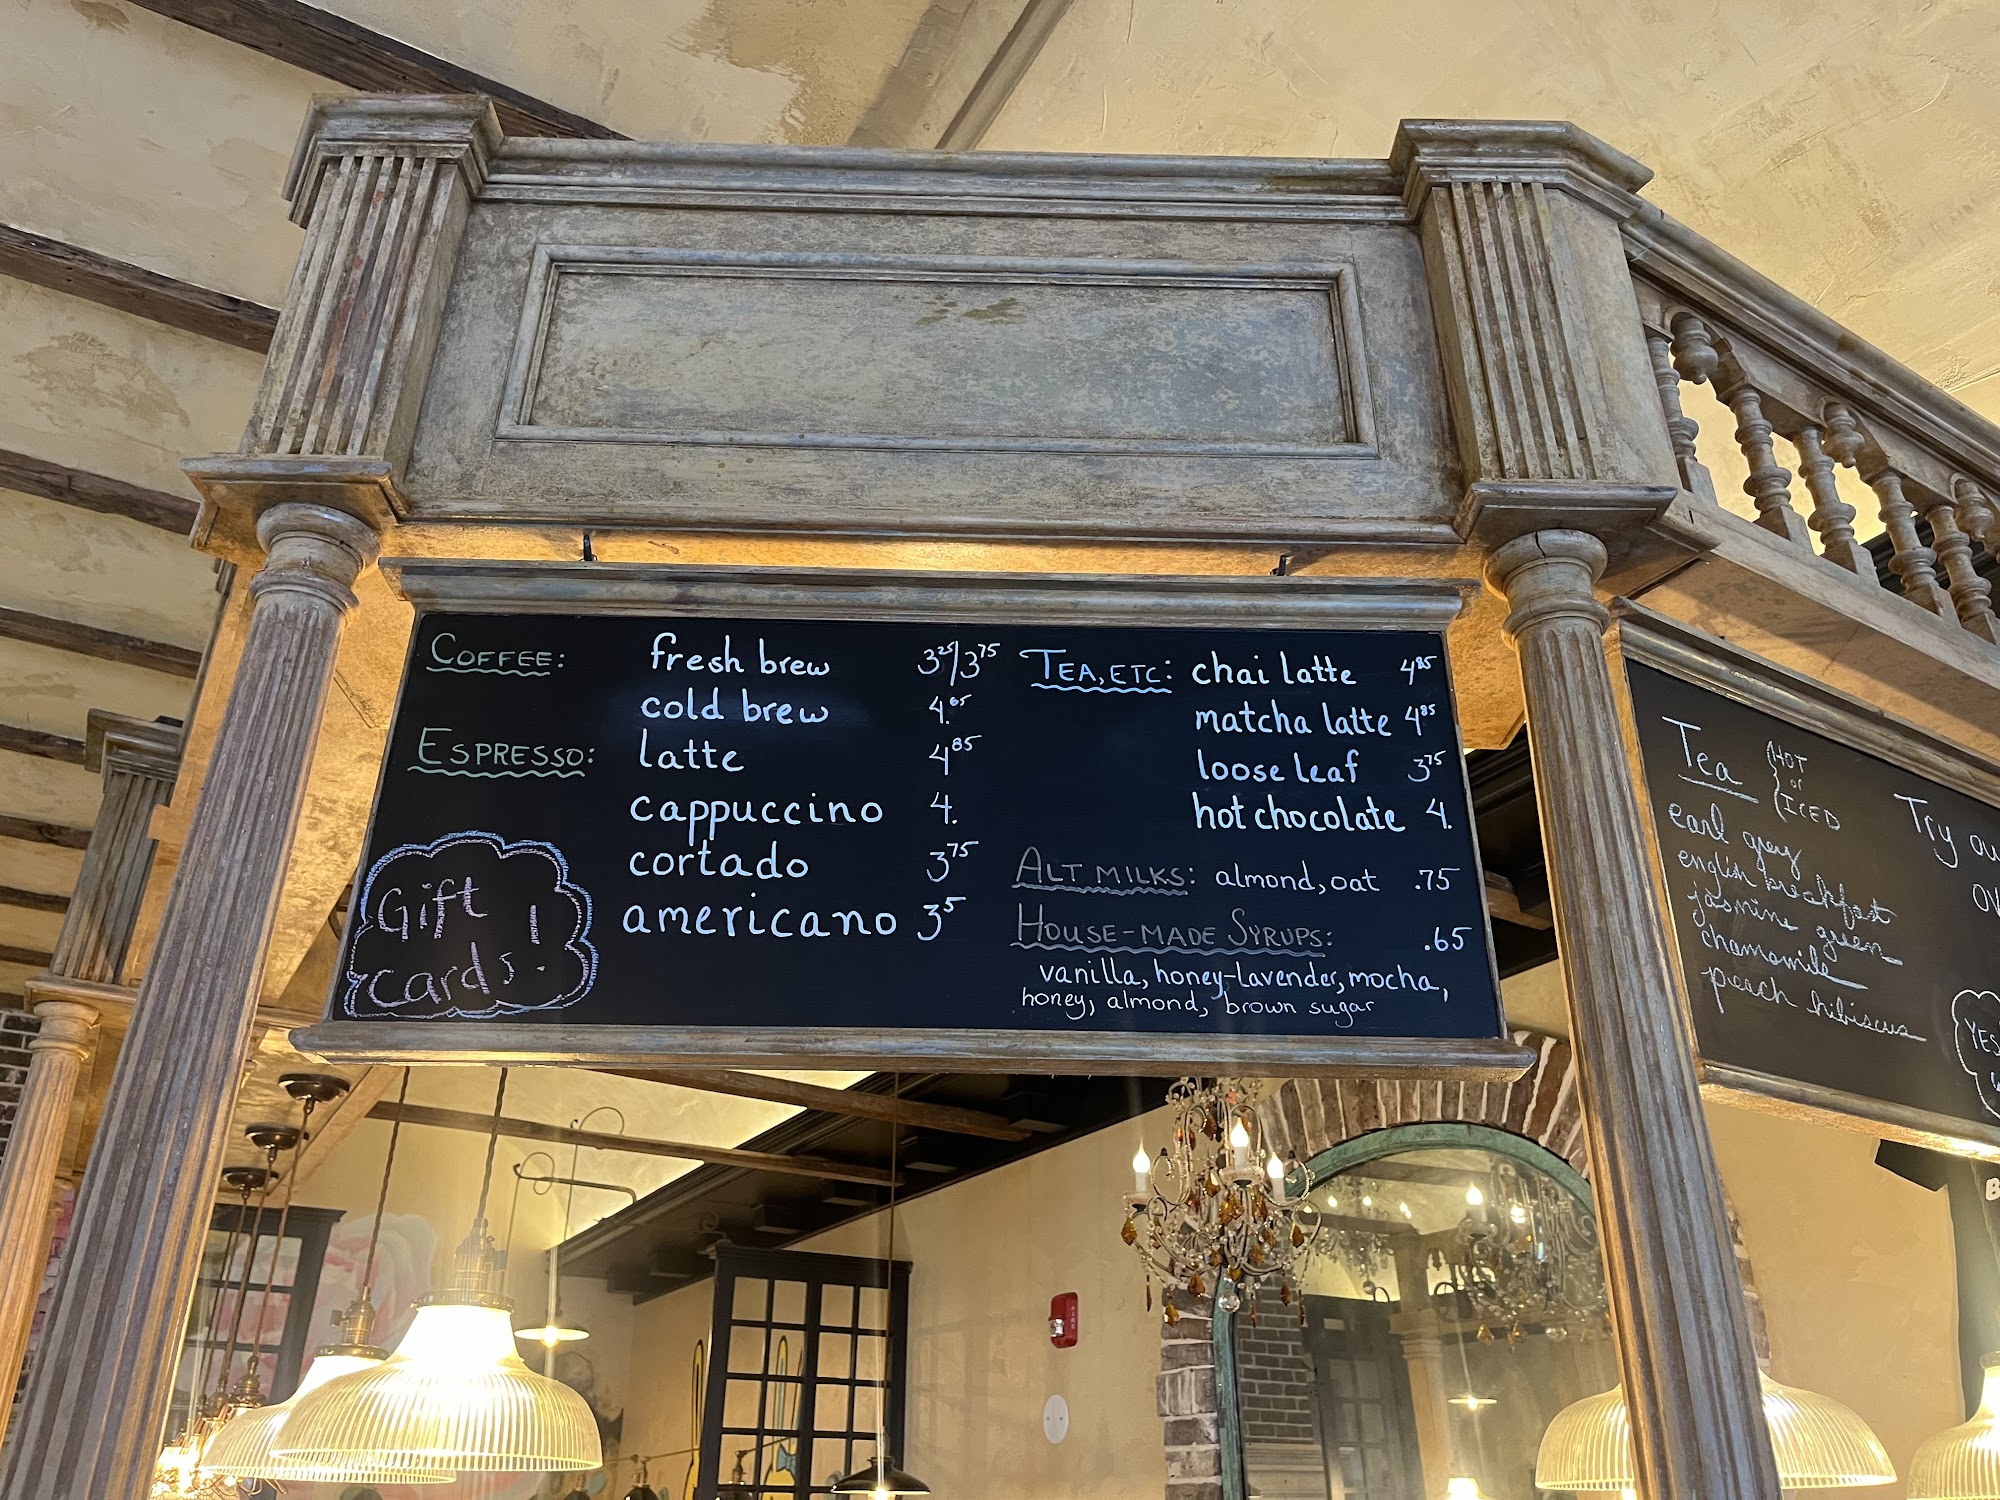 COFFEE: fresh brew 3²⁵/3⁷⁵
cold brew 4.⁶⁵
ESPRESSO: latte 4⁸⁵
cappuccino 4.
cortado 3⁷⁵
americano 3⁵
Gift
cards!
TEA, ETC: chai latte 4⁸⁵
matcha latte 4⁸⁵
loose leaf 3⁷⁵
hot chocolate 4.
ALT MILKS: almond, oat .75
HOUSE-MADE SYRUPS: .65
vanilla, honey-lavender, mocha,
honey, almond, brown sugar
Tea HOT
or
ICED
earl grey
english breakfast
jasmine green
chamomile
peach hibiscus
Try
YES
FIRE